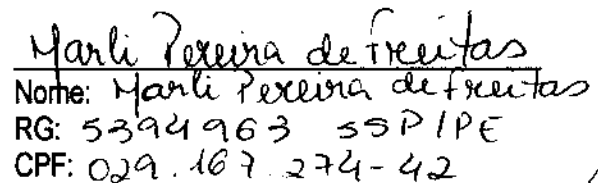 Marli Pereira de Freitas
Nome: Marli Pereira de Freitas
RG: 5394963 SSP/PE
CPF: 029.167.274-42